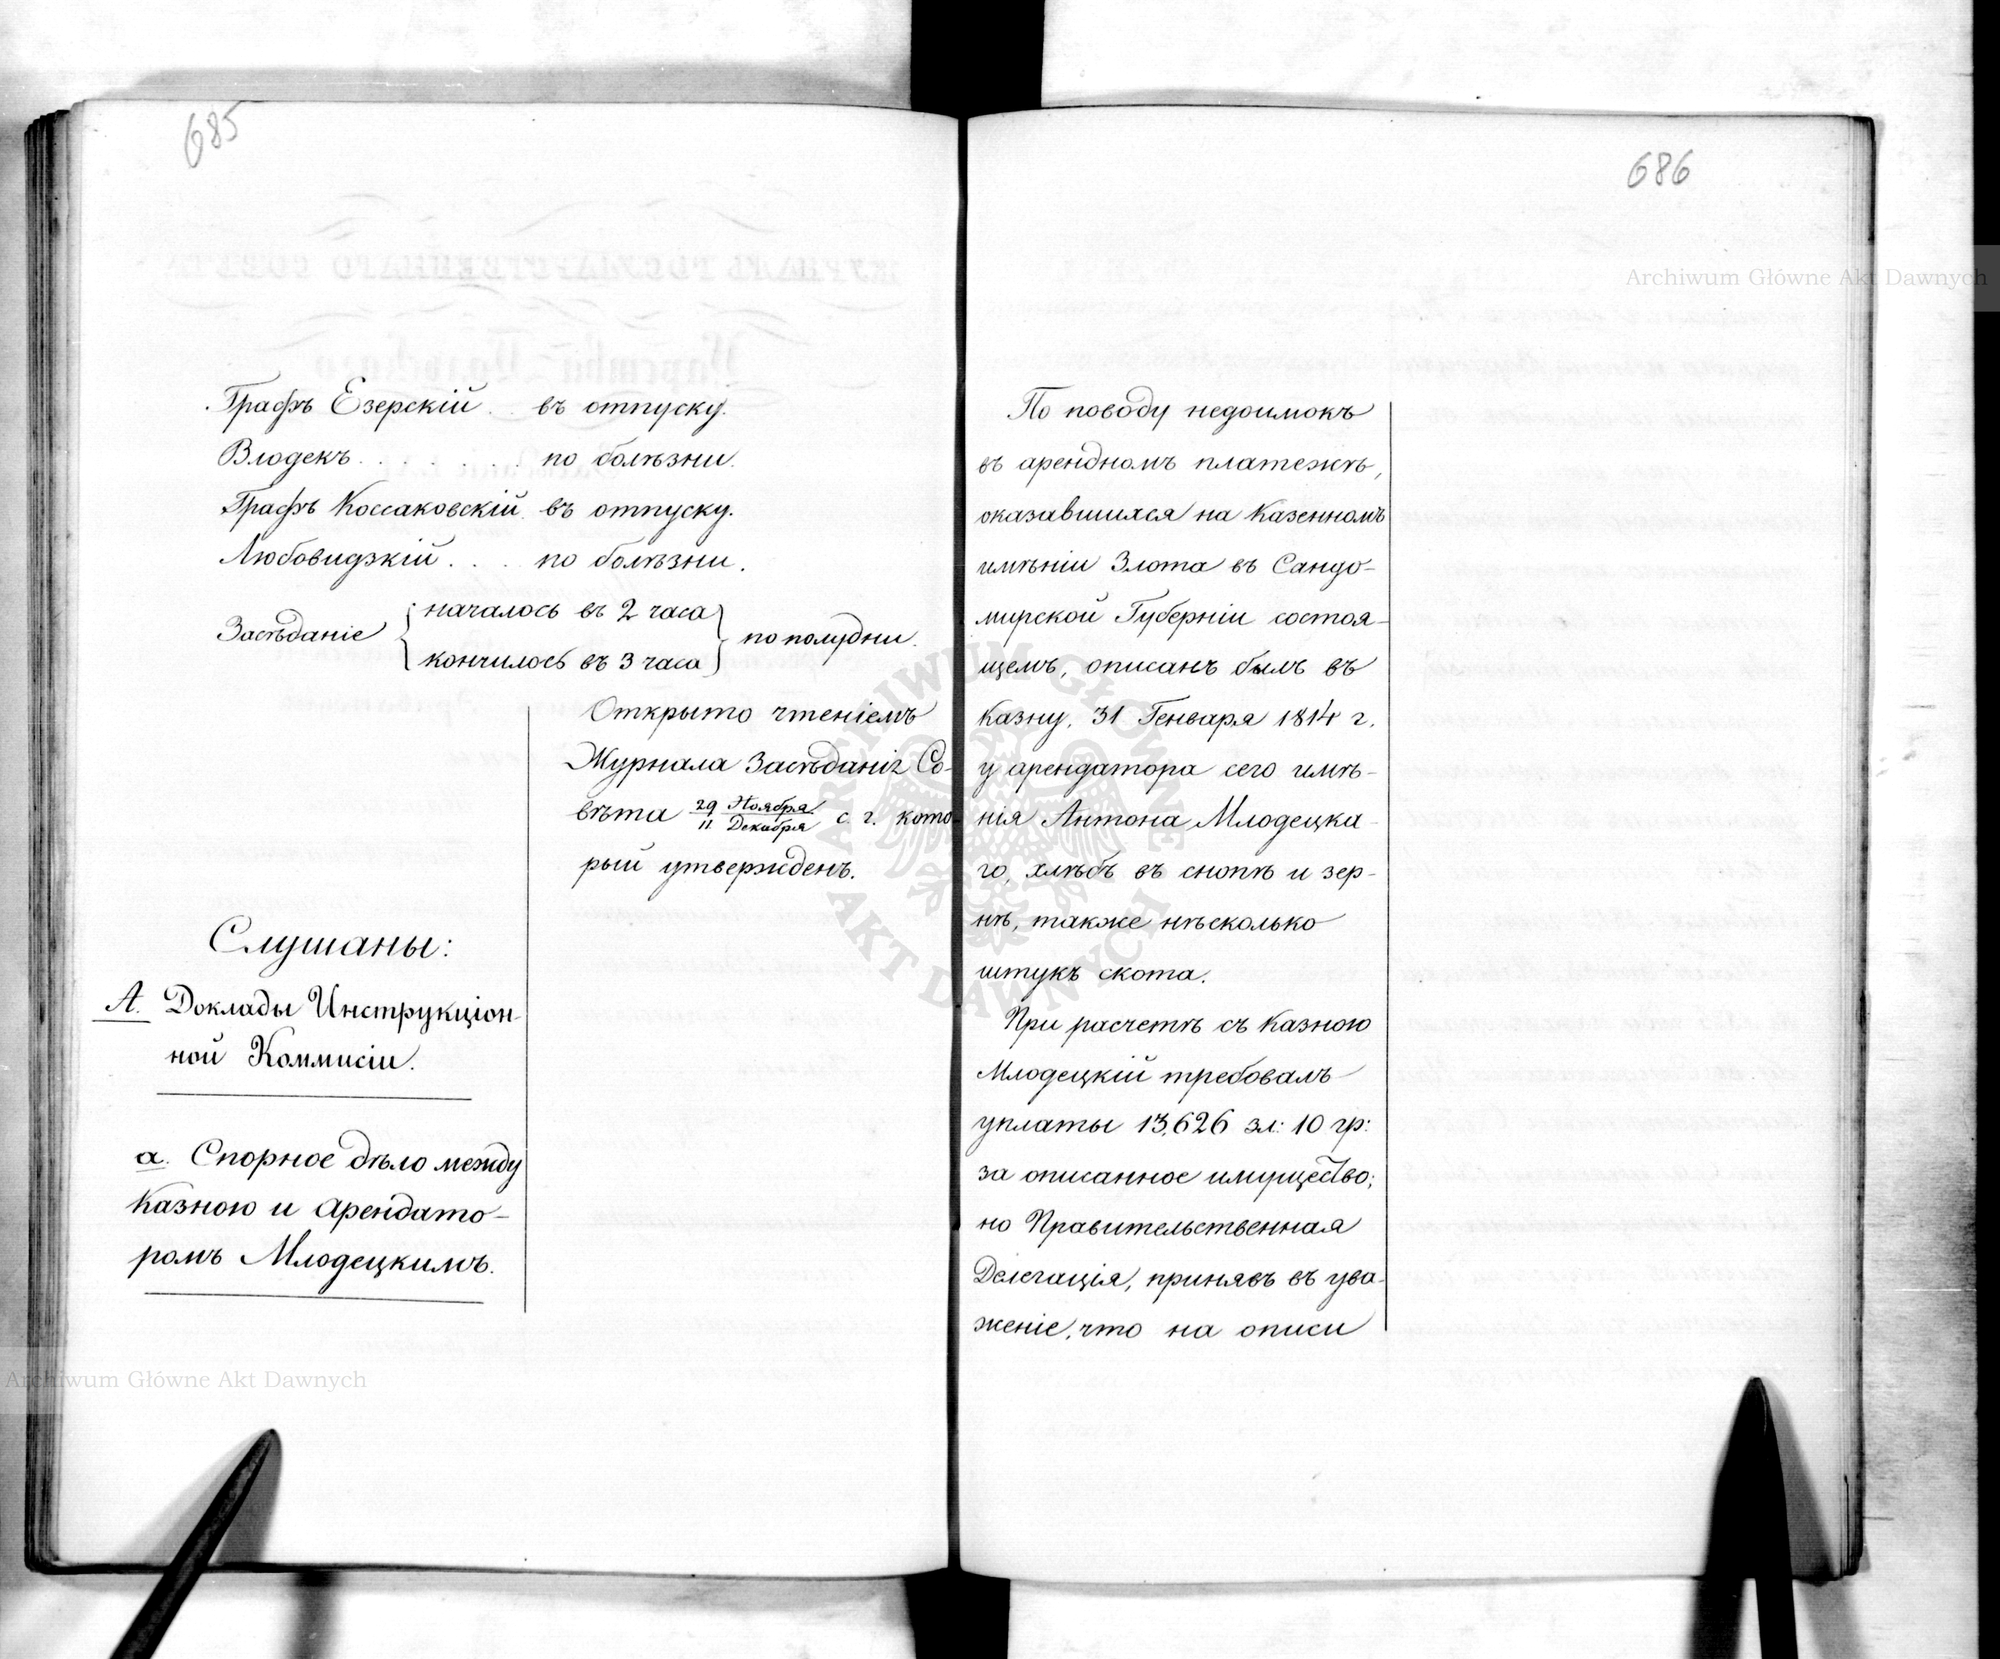 685
Графъ Езерскій . . въ отпуску.
Влодекъ . . . . . . по болѣзни.
Графъ Коссаковскій въ отпуску.
Любовидзкій . . . по болѣзни.
Засѣданіе { началось въ 2 часа
кончилось въ 3 часа } по полудни.
Открыто чтеніемъ
Журнала Засѣданія Со-
вѣта 29 Ноября / 11 Декабря с. г. кото-
рый утвержденъ.
Слушаны:
А. Доклады Инструкціон-
ной Коммисіи.
а. Спорное дѣло между
Казною и Арендато-
ромъ Млодецкимъ.
686
По поводу недоимокъ
въ арендномъ платежѣ,
оказавшихся на Казенномъ
имѣніи Злота въ Сандо-
мирской Губерніи состоя-
щемъ, описанъ былъ въ
Казну, 31 Генваря 1814 г.
у арендатора сего имѣ-
нія Антона Млодецка-
го, хлѣбъ въ снопѣ и зер-
нѣ, также нѣсколько
штукъ скота.
При расчетѣ съ Казною
Млодецкій требовалъ
уплаты 13,626 зл: 10 гр:
за описанное имущество;
но Правительственная
Делегація, принявъ въ ува-
женіе, что на описи
Archiwum Główne Akt Dawnych
Archiwum Główne Akt Dawnych
ARCHIWUM GŁÓWNE AKT DAWNYCH